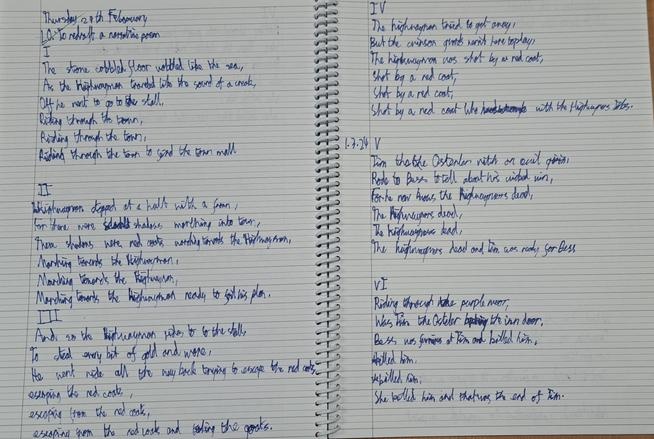 Thursday 29th February
LO: To redraft a narrative poem
I
The stone cobbled floor wobbled like the sea,
As the Highwayman traveled like the sound of a creak,
Off he went to go to the stall,
Riding through the town,
Riding through the town,
Riding through the town to find the town mall.
II
Highwayman stopped at a halt with a
for there were shadows marching into town,
These shadows were red coats, marching towards the Highwayman,
Marching towards the Highwayman,
Marching towards the Highwayman,
Marching towards the Highwayman ready to foil his plan.
III
And so the Highwayman rides to the stall,
To steal every bit of gold and more,
He went ride all the way back trying to escape the red coats
escaping the red coats,
escaping from the red coats,
escaping from the red coats and the goods.
IV
The highwayman tried to get away,
But the crimson weren't here to play,
The highwayman was shot by a red coat,
Shot by a red coat,
Shot by a red coat,
Shot by a red coat who with the Highwaymans
1.3.24 V
Tim the Ostenler with an evil
Rode to Bess to tell about his wicked win,
For he now knows the Highwaymans dead,
The Highwaymans dead,
The Highwaymans dead,
The highwaymans dead and Tim was ready for Bess
VI
Riding through the purple moor,
Was Tim the Osteler the inn door,
Bess was furious at Tim and killed him,
killed him,
killed him,
She killed him and that was the end of Tim.